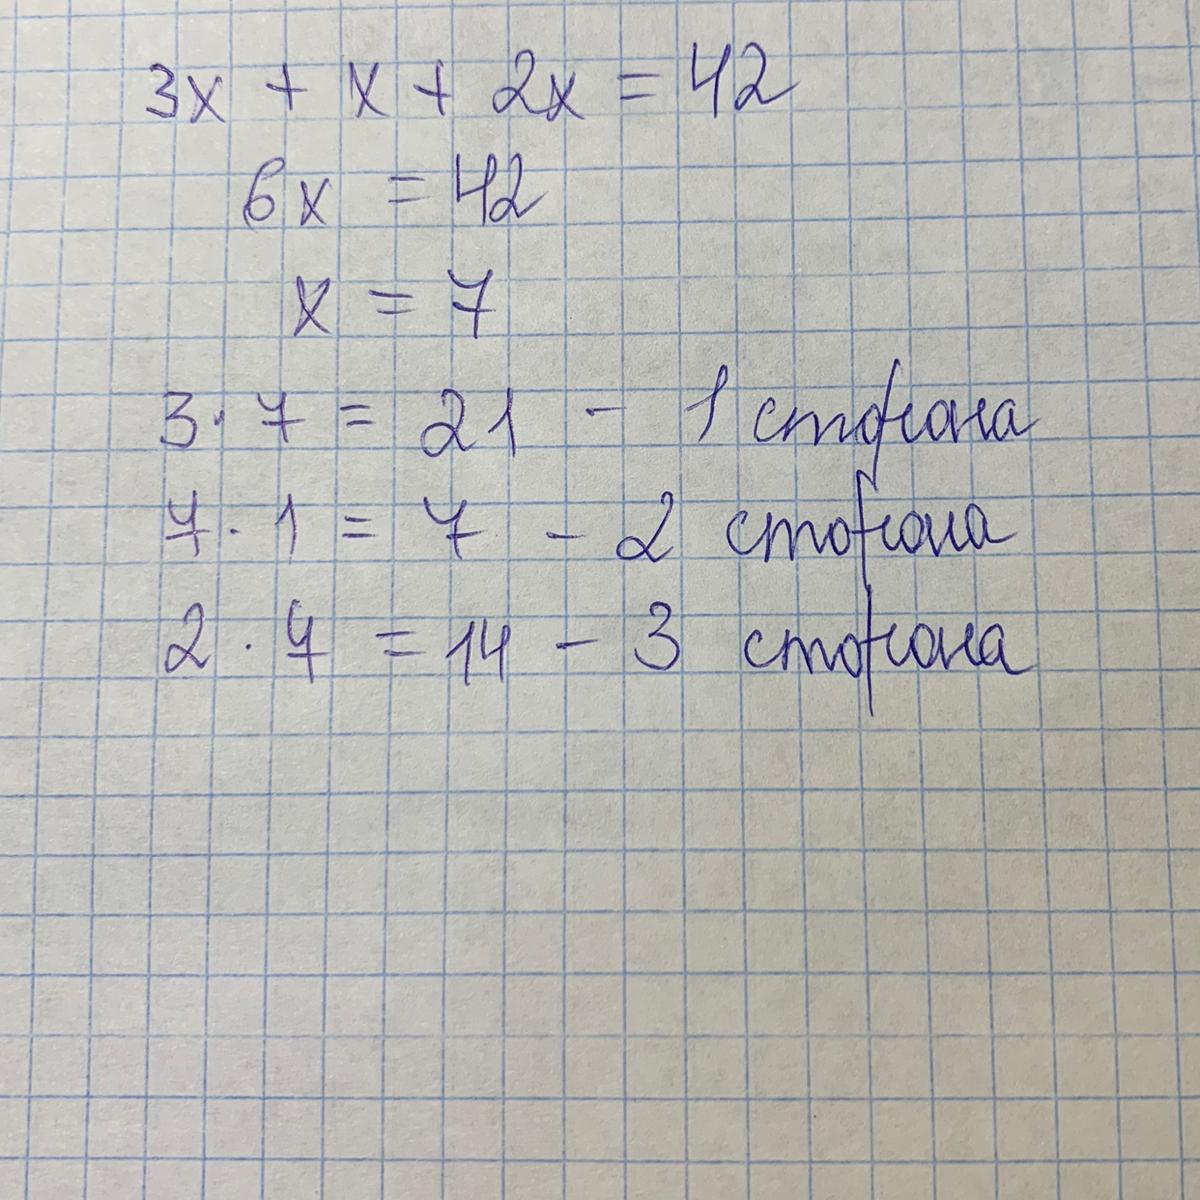 3x + x + 2x = 42
6x = 42
x = 7
3 · 7 = 21 - 1 сторона
7 · 1 = 7 - 2 сторона
2 · 7 = 14 - 3 сторона